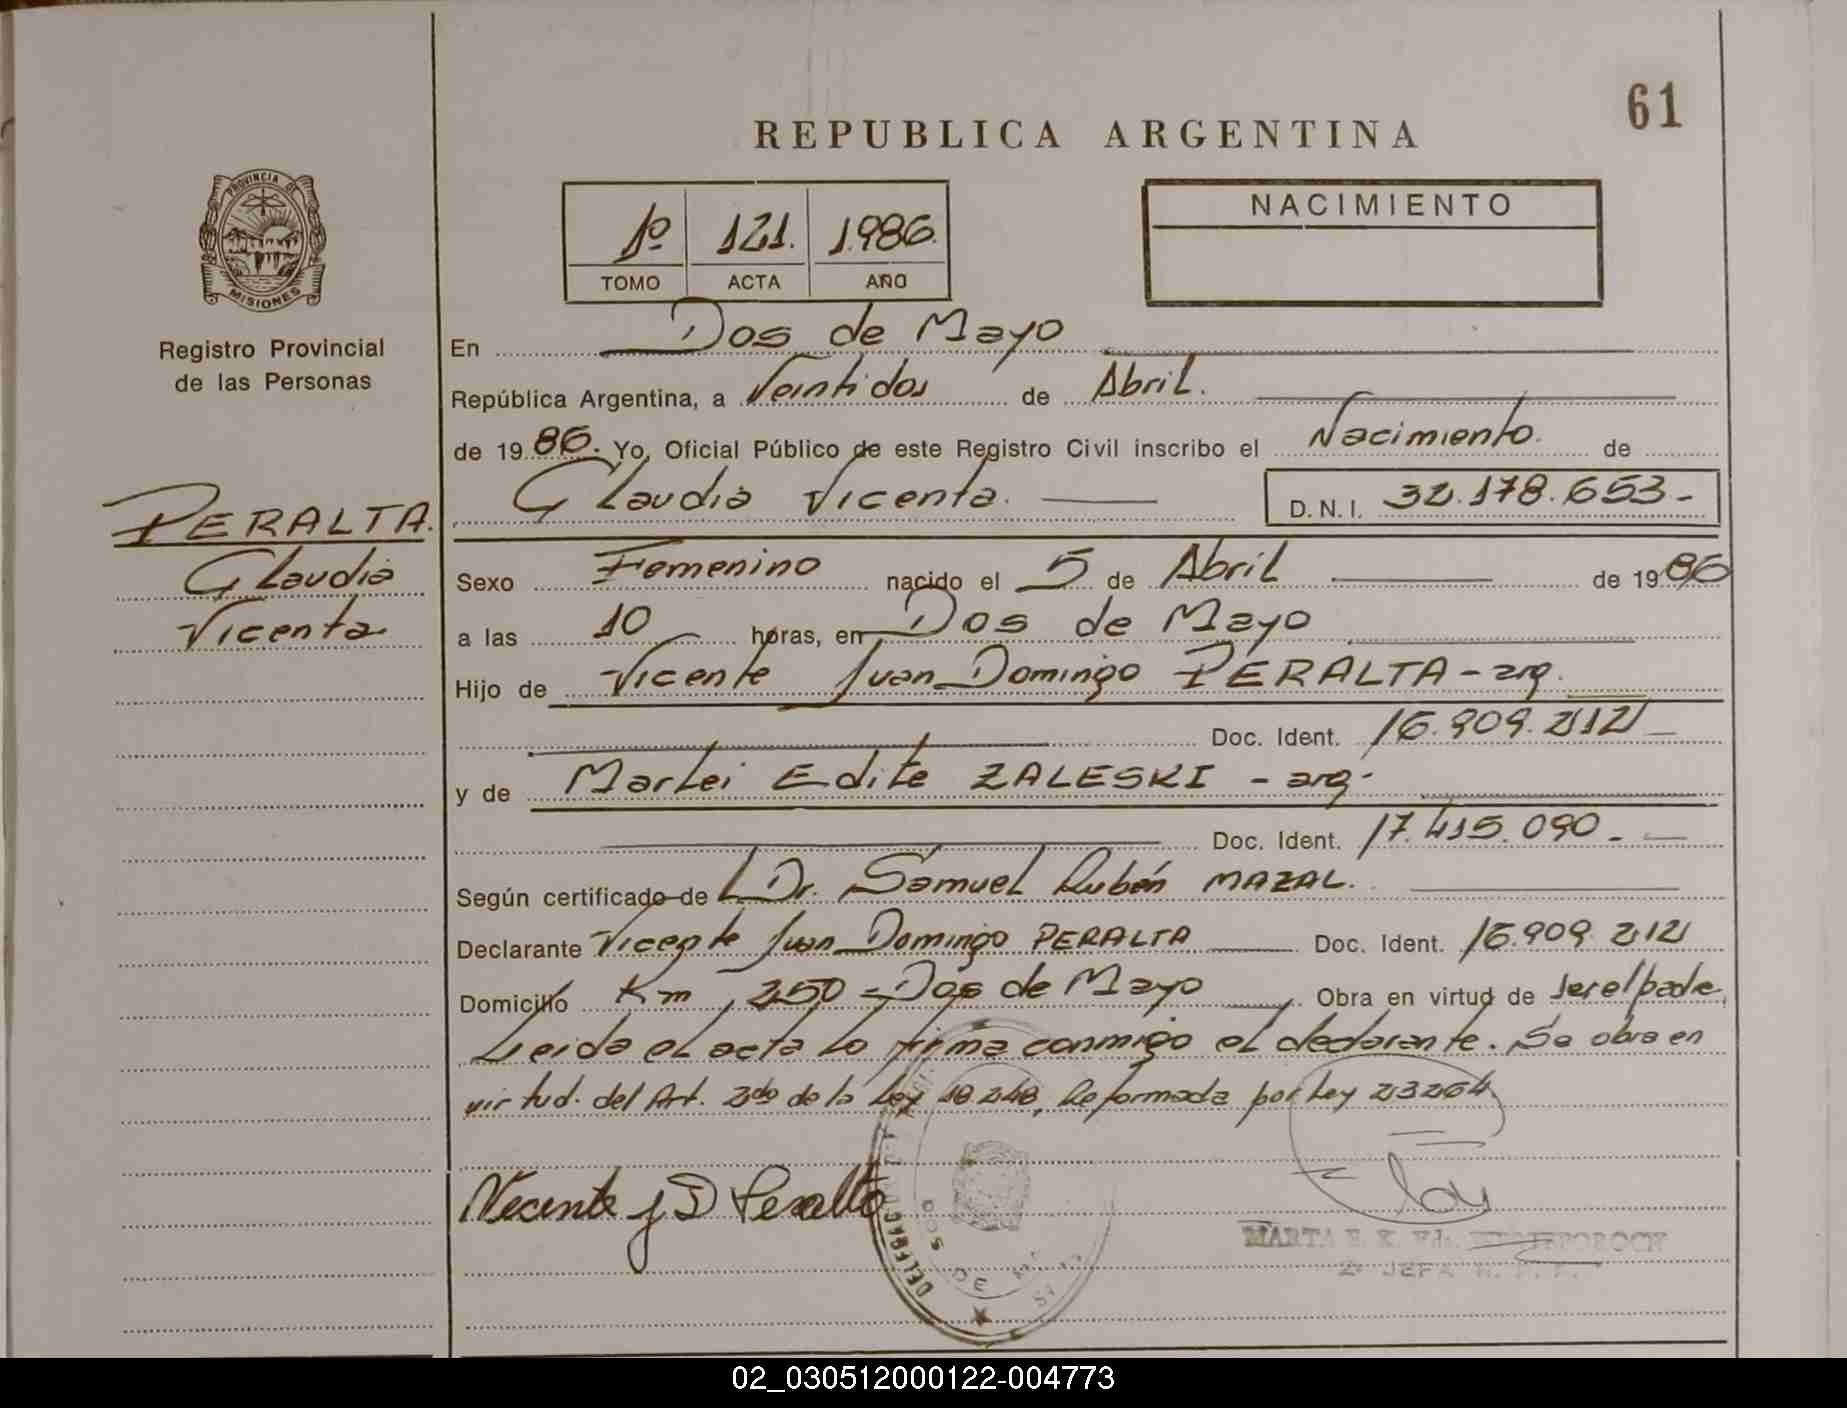 61
REPUBLICA ARGENTINA
PROVINCIA DE
MISIONES
1º 121. 1.986.
TOMO ACTA AÑO
NACIMIENTO
Registro Provincial
de las Personas
En Dos de Mayo
República Argentina, a Veintidos de Abril.
de 19 86. Yo, Oficial Público de este Registro Civil inscribo el Nacimiento. de
Claudia Vicenta. D.N.I. 32.178.653-
PERALTA.
Claudia
Vicenta
Sexo Femenino nacido el 5 de Abril de 19 86
a las 10 horas, en Dos de Mayo
Hijo de Vicente Juan Domingo PERALTA - arg.
Doc. Ident. 16.909.212
y de Marlei Edite ZALESKI - arg.
Doc. Ident. 17.415.090.
Según certificado de Dr. Samuel Rubén MAZAL.
Declarante Vicente Juan Domingo PERALTA Doc. Ident. 16.909.212
Domicilio Km. 250 - Dos de Mayo Obra en virtud de ser el padre.
Leida el acta lo firma conmigo el declarante. Se obra en
virtud. del Art. 2do de la Ley 18.248, Reformada por Ley 23264.
Vicente J D Peralta
MARTA
02_030512000122-004773